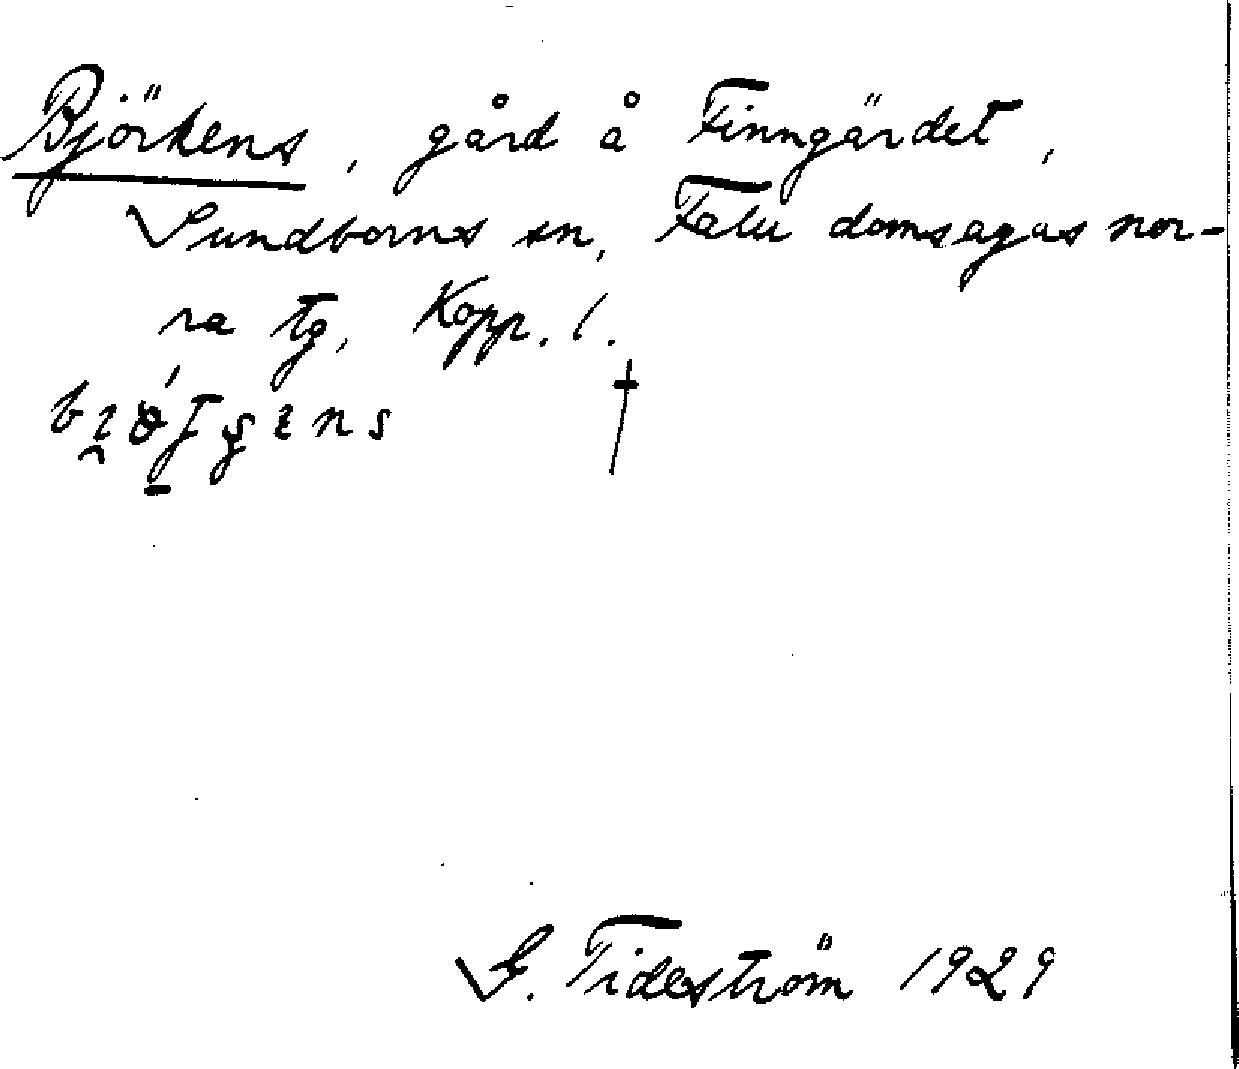 Björkens, gård å Finngärdet,
Sundborns sn, Falu domsagas nor-
ra tg, Kopp. l.
†
G. Tideström 1929